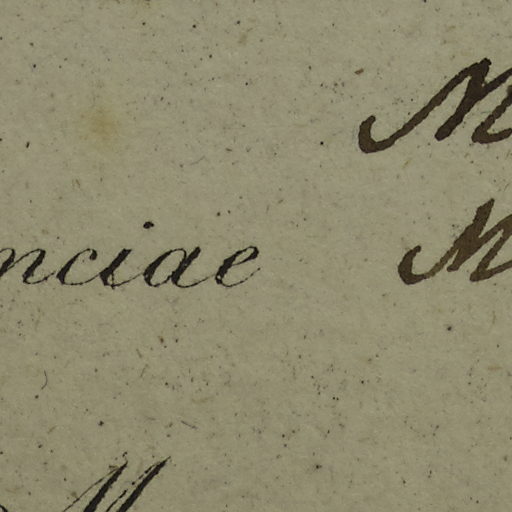 M
nciae M
M